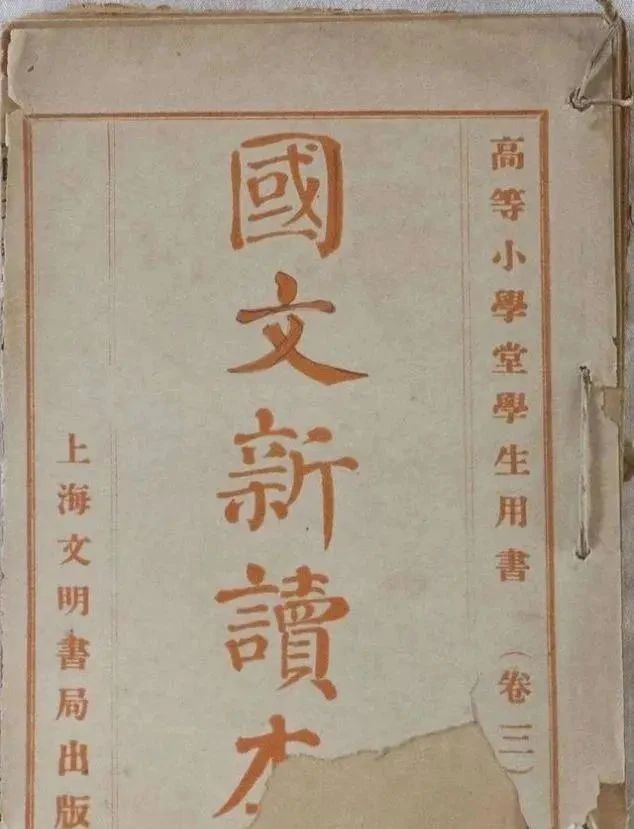 高等小學堂學生用書（卷三）
國文新讀本
上海文明書局出版